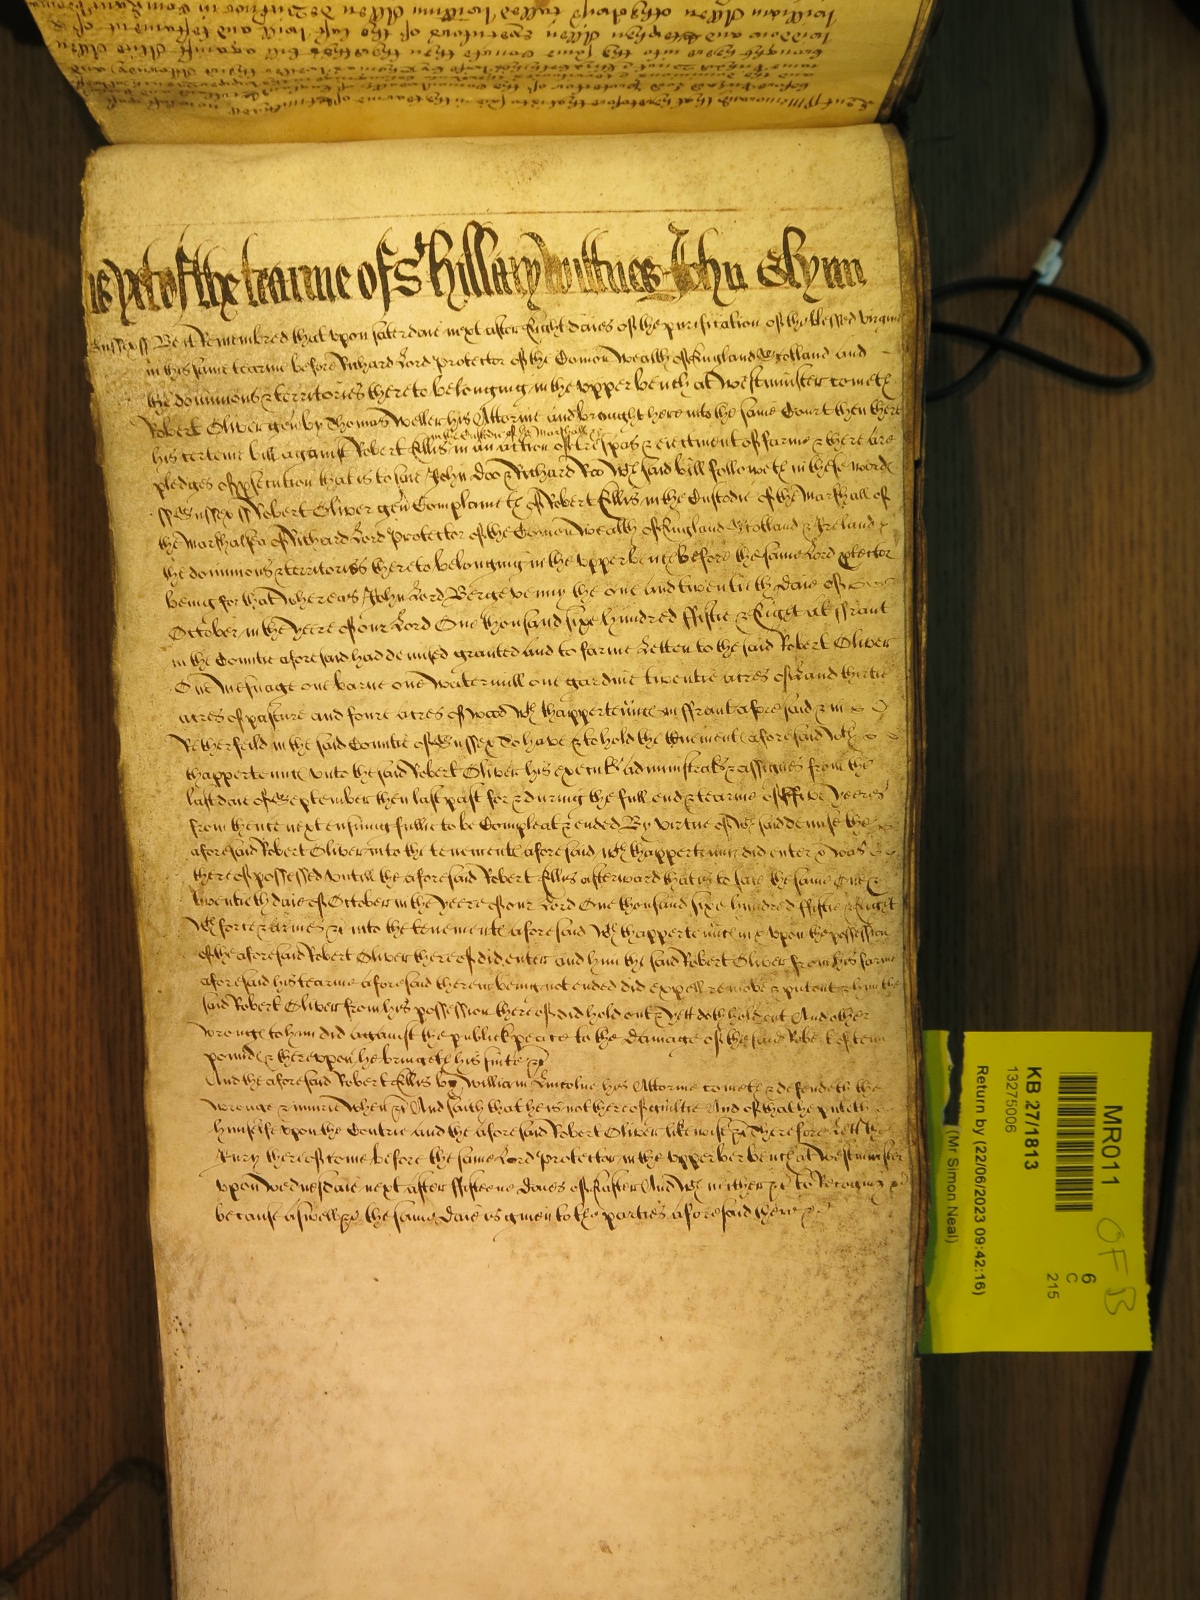 as yet of the tearme of St Hillary witnes John Glynn
Sussex ss Be it Remembred that upon saterdaie next after Eight daies of the purification of the blessed virgin
in this same tearme before Richard Lord Protector of the Comon Wealth of England Scotland and
the dominions & territories thereto belonging in the upper bench at Westminster cometh
Robert Oliver gen by Thomas Weller his Attorne and brought here into the same Court then there
in the Custodie of the Marshall &c
his certeine bill against Robert Ellis in an action of trespas & eiectment of farme & there are
pledges of prsecution that is to saie John Doo & Richard Roo wch said bill followeth in these words
ss Sussex ss Robert Oliver gen Complaineth of Robert Ellis in the Custodie of the Marshall of
the Marshalsea of Richard Lord Protector of the Comon wealth of England Scotland & Ireland &
the dominions & territories thereto belonging in the upper bench before the same Lord protector
being for that whereas John Lord Bergevenny the one and twentieth daie of
October in the yeere of our Lord One thousand sixe hundred fiftie & Eight at ffrant
in the Countie aforesaid had demised granted and to farme Letten to the said Robert Oliver
One Mesuage one barne one Watermill one gardine twentie acres of Land thirtie
acres of pasture and foure acres of wood wth thappertenunces in ffrant aforesaid & in
Retherfeild in the said Countie of Sussex To have & to hold the tenements aforesaid wth
thappertenunces unto the said Robert Oliver his executrs administratrs & assignes from the
last daie of September then last past for & during the full end & tearme of ffive yeeres
from thence next ensuing fullie to be Compleat & ended By virtue of wch said demise the
aforesaid Robert Oliver into the tenements aforesaid wth thappertenunces did enter & was
thereof possessed untill the aforesaid Robert Ellis afterward that is to saie the same One &
twentieth daie of October in the yeere of our Lord One thousand sixe hundred fiftie & Eight
wth force & armes &c into the tenements aforesaid wth thappertenunces in & upon the possession
of the aforesaid Robert Oliver thereof did enter and him the said Robert Oliver from his farme
aforesaid his tearme aforesaid therein being not ended did expell remove & put out & him the
said Robert Oliver from his possession thereof did hold out & yett doth hold out And other
wrongs to him did against the publick peace to the damage of the said Robert of tenn
pounds & thereupon he bringeth his suite &c
And the aforesaid Robert Ellis by William Lincolne his Attorne cometh & defendeth the
wronge & iniurie when &c And saith that he is not thereof guiltie And of that he putteth
himselfe upon the Contrie and the aforesaid Robert Oliver likewise &c Therefore Lett the
Jury thereof come before the same Lord Protector in the upper bench at Westminster
upon Wednesdaie next after fifteene daies of Easter And wch neither &c to Recogniz &c
because aswell &c the same daie is given to the parties aforesaid there &c
MR011
KB 27/1813
13275006
Return by (22/06/2023 09:42:16)
(Mr Simon Neal)
6
C
215
OFB